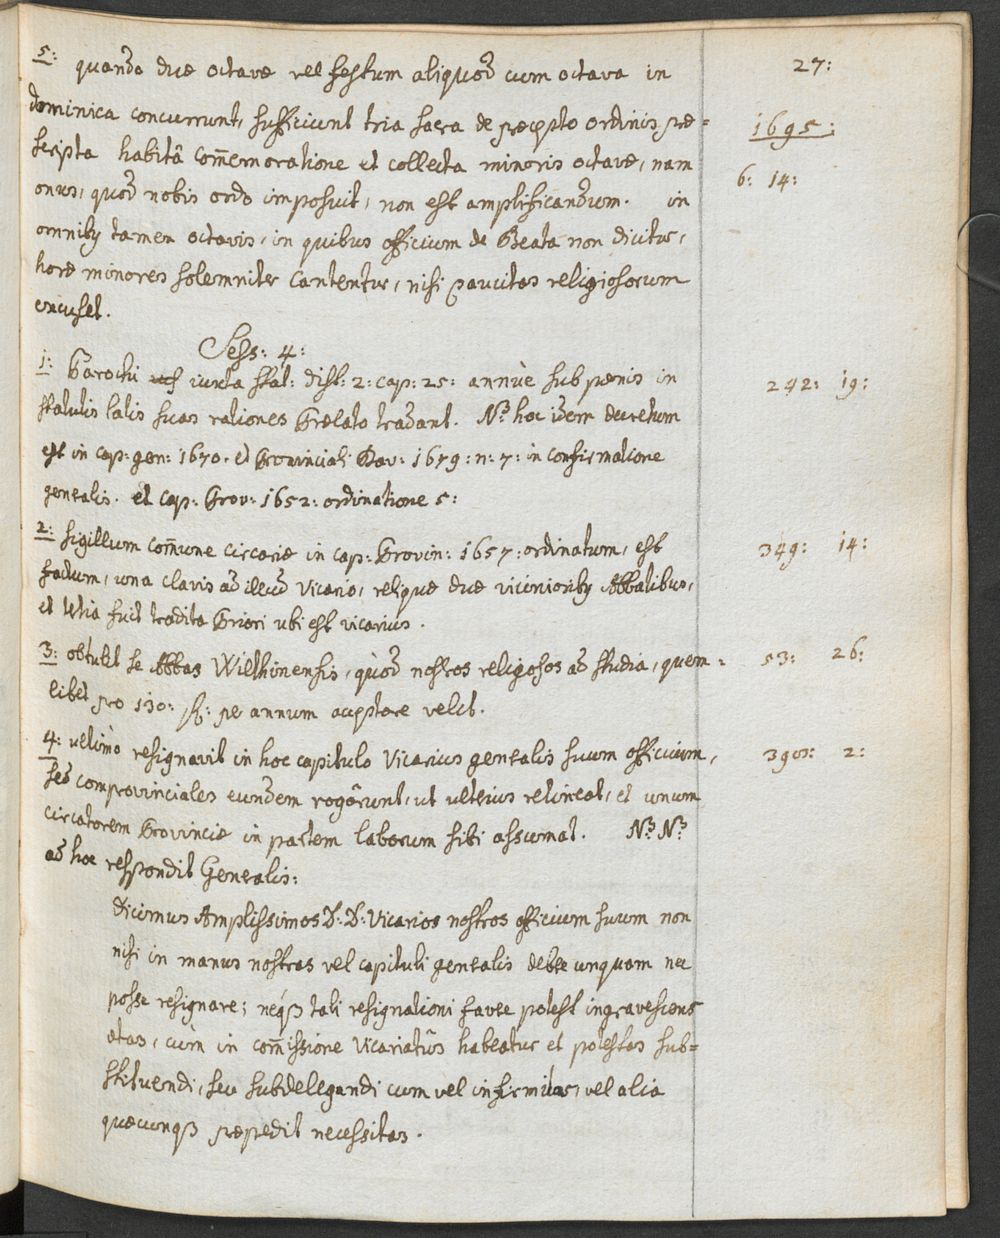 27:
1695:
5: quando duæ octavæ vel festum aliquod cum octava in
dominica concurrunt, sufficiunt tria sacra de præcepto ordinis præ=
scripta habitâ com̄emoratione et collecta minoris octavæ, nam
onus, quod nobis ordo imposuit, non est amplificandum. in
6: 14:
omnibꝫ tamen octavis, in quibus officium de Beata non dicitur,
horæ minores solemniter cantentur, nisi paucitas religiosorum
excuset.
Sess: 4:
1: Parochi iuxta stat: dist: 2: cap: 25: annuè sub pœnis in
242: 19:
statutis latis suas rationes Prælato tradant. Nᵃ hoc idem decretum
est in cap: gen: 1670. et Provinciali Bav: 1679: n: 7: in confirmatione
genealis. et cap: Prov: 1652: ordinatione 5:
2: sigillum com̄une circariæ in cap: Provin: 1657: ordinatum, est
349: 14:
factum, una clavis ad illud Vicario, reliquæ duæ vicinioribꝫ Abbatibus,
et tertia fuit tradita Priori ubi est vicarius.
3: obtulit se Abbas Wilthinensis, quòd nostros religiosos ad studia, quem=
53: 26:
libet pro 130: fl: per annum acceptare velit.
4: ultimò resignavit in hoc capitulo Vicarius genealis suum officium,
390: 2:
sed comprovinciales eundem rogârunt, ut ulterius retineat, et unum
circatorem Provinciæ in partem laborum sibi assumat. Nᵃ Nᵃ
ad hoc respondit Genealis:
dicimus Amplissimos D: D: Vicarios nostros officium suum non
nisi in manus nostras vel capituli genealis debere unquam nec
posse resignare; neqꝫ tali resignationi favere potest ingravescens
ætas, cùm in com̄issione Vicariatûs habeatur et potestas sub=
stituendi, seu subdelegandi cum vel infirmitas, vel alia
quæcunqꝫ præpedit necessitas.